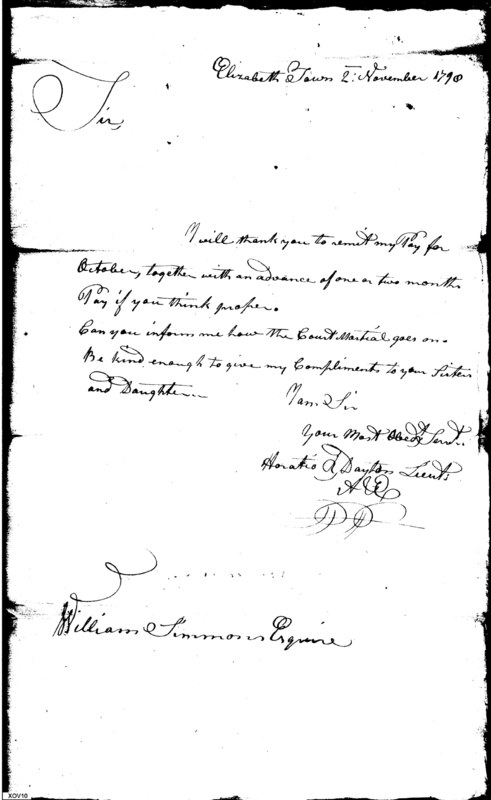 Elizabeth Town 2d November 1798
Sir,
I will thank you to remit my Pay for
October, together with an advance of one or two months
Pay if you think proper.
Can you inform me how the Court Martial goes on.
Be kind enough to give my Compliments to your Sisters
and Daughter.
I am Sir
Your Most Obedt Servt.
Horatio R Dayton Lieut
William Simmons Esquire
XOV10